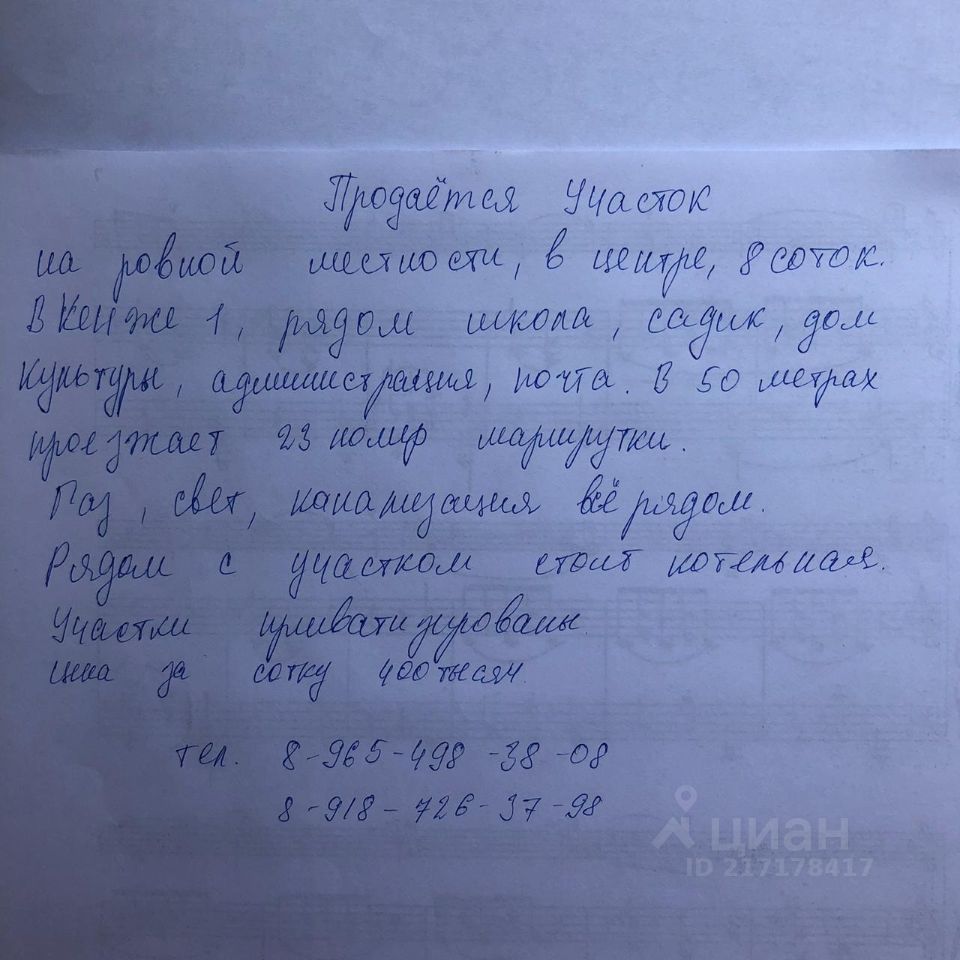 Продаётся Участок
на ровной местности, в центре, 8 соток.
В Кенже 1, рядом школа, садик, дом
Культуры, администрация, почта. В 50 метрах
проезжает 23 номер маршрутки.
Газ, свет, канализация всё рядом.
Рядом с участком стоит котельная.
Участки приватизированы.
цена за сотку 400 тысяч.
тел. 8-965-498-38-08
8-918-726-37-98
циан
ID 217178417